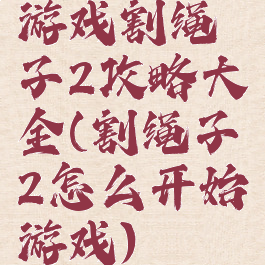 游戏割绳
子2攻略大
全(割绳子
2怎么开始
游戏)